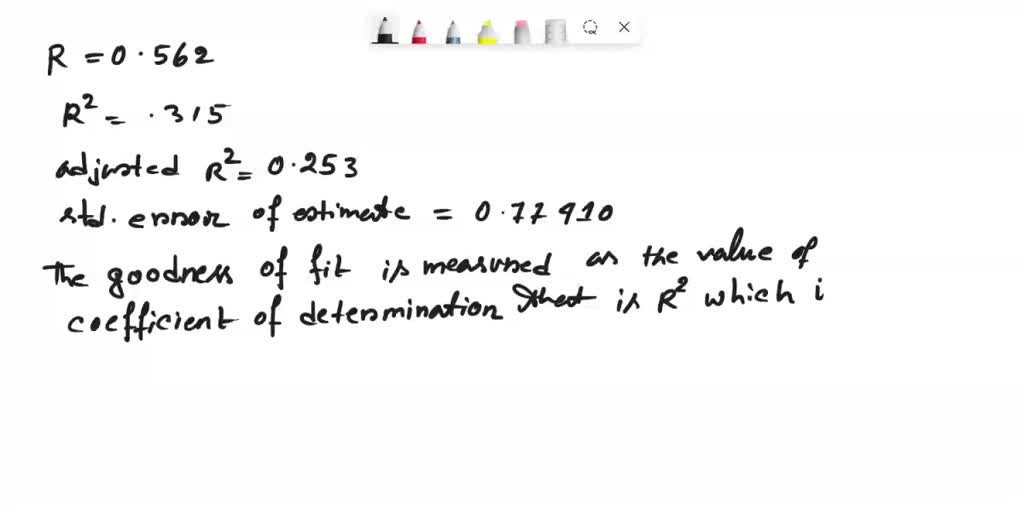 R = 0.562
R² = .315
adjusted R² = 0.253
std. error of estimate = 0.77910
The goodness of fit is measured as the value of
coefficient of determination that is R² which i